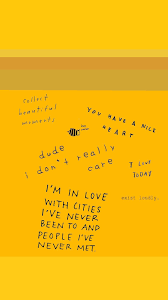 collect
beautiful
moments
YOU HAVE A NICE
HEART
dude
i don't really
care
I LOVE
TODAY
I'M IN LOVE
WITH CITIES
I'VE NEVER
BEEN TO AND
PEOPLE I'VE
NEVER MET.
exist loudly.